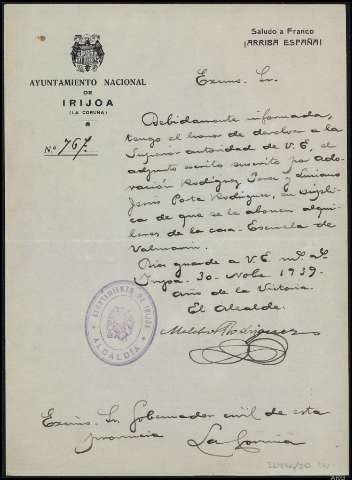 Saludo a Franco
¡ARRIBA ESPAÑA!
AYUNTAMIENTO NACIONAL
DE
IRIJOA
(LA CORUÑA)
N.º 767.
Excmo. Sr.
Debidamente informada,
tengo el honor de devolver a la
Superior autoridad de V.E, el
adjunto escrito suscrito por Ado-
ración Rodríguez y
Jesús Porta Rodríguez, en súpli-
ca de que se le abonen alqui-
leres de la casa-Escuela de
Dios guarde a V.E m.s a.s
Irijoa. 30. Nobe 1939.
Año de la Victoria.
El Alcalde.
Rodríguez
AYUNTAMIENTO DE IRIJOA
ALCALDÍA
Excmo. Sr Gobernador civil de esta
provincia
La Coruña